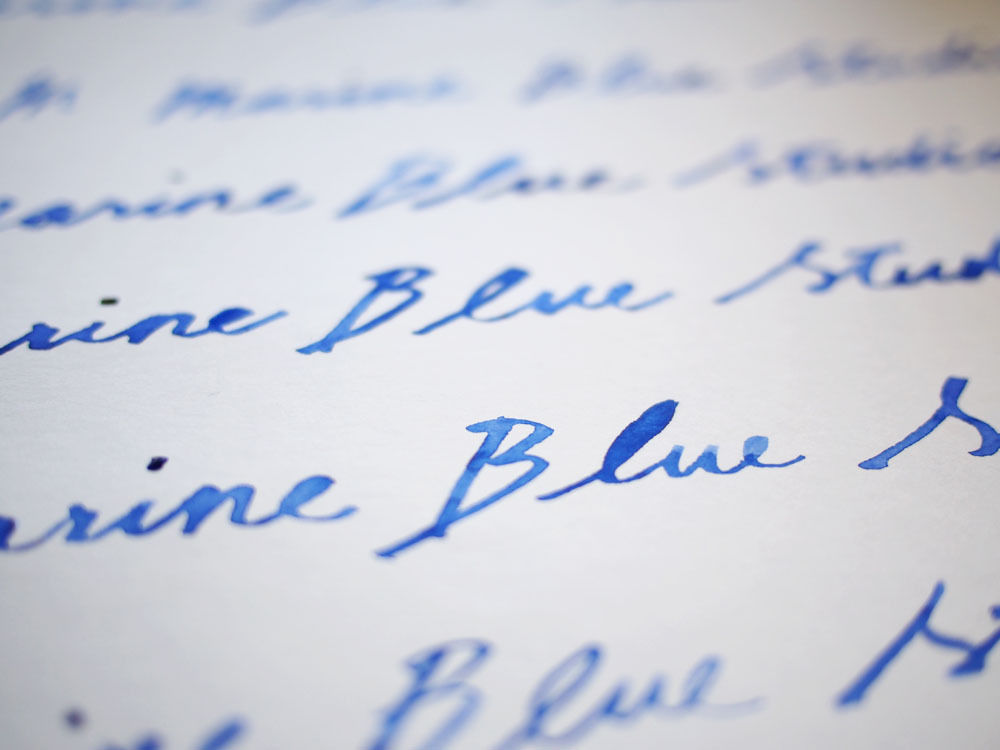 Marine Blue Stud
arine Blue Studi
rine Blue Stud
arine Blue S
ine Blue St